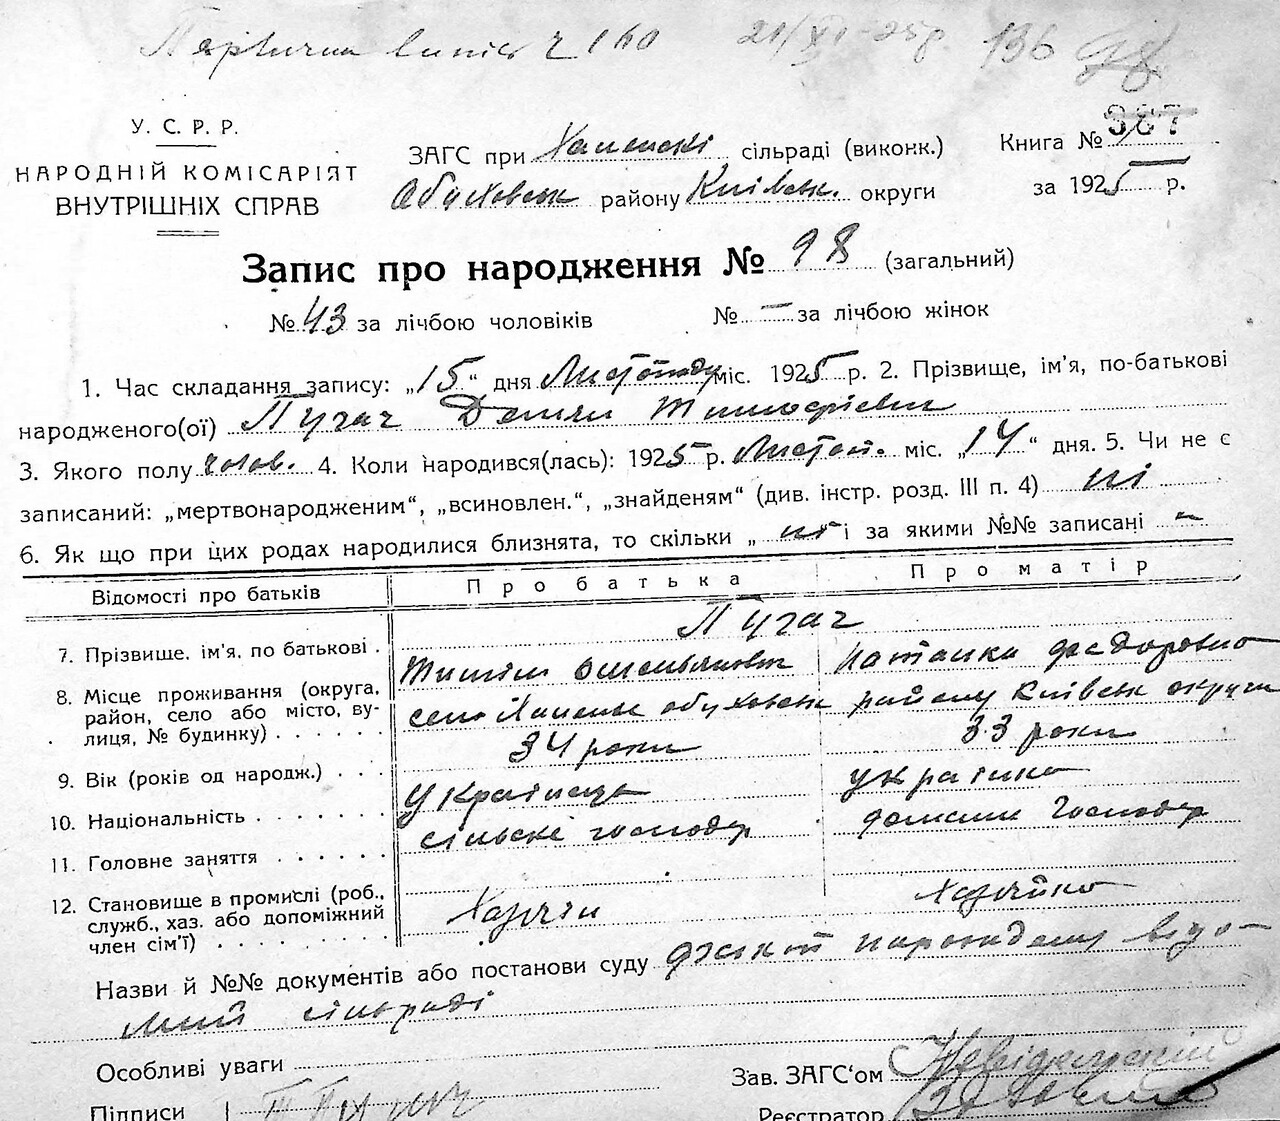 21/XI-25р. 136 98
У. С. Р. Р.
НАРОДНІЙ КОМІСАРІЯТ
ВНУТРІШНІХ СПРАВ
ЗАГС при сільраді (виконк.)
Обуховськ району Київськ. округи
Книга № 387
за 1925 р.
Запис про народження № 98 (загальний)
№ 43 за лічбою чоловіків № — за лічбою жінок
1. Час складання запису: „15“ дня Листопаду міс. 1925 р. 2. Прізвище, ім'я, по-батькові
народженого(ої) Пугач Демян Тимофієвич
3. Якого полу чолов. 4. Коли народився(лась): 1925 р. Листоп. міс. „14“ дня. 5. Чи не є
записаний: „мертвонародженим“, „всиновлен.“, „знайденям“ (див. інстр. розд. III п. 4) ні
6. Як що при цих родах народилися близнята, то скільки „ ні і за якими №№ записані "
Відомості про батьків Про батька Про матір
7. Прізвище, ім'я, по батькові . Пугач
Тиміш Омельянович Наталка Федоровна
8. Місце проживання (округа, район, село або місто, вулиця, № будинку) . . . . . . село обуховськ району Київськ округи
9. Вік (років од народж.) . . . 34 роки 33 роки
10. Національність . . . . . . . українець українка
11. Головне заняття . . . . . . сільске господар домашн господар
12. Становище в промислі (роб., служб., хаз. або допоміжний член сім'ї) . . . . . . . . . Хазяїн Хазяйка
Назви й №№ документів або постанови суду факт народженя відо-
мий сільраді
Особливі уваги
Зав. ЗАГС'ом
Підписи | Т Пугач
Реєстратор